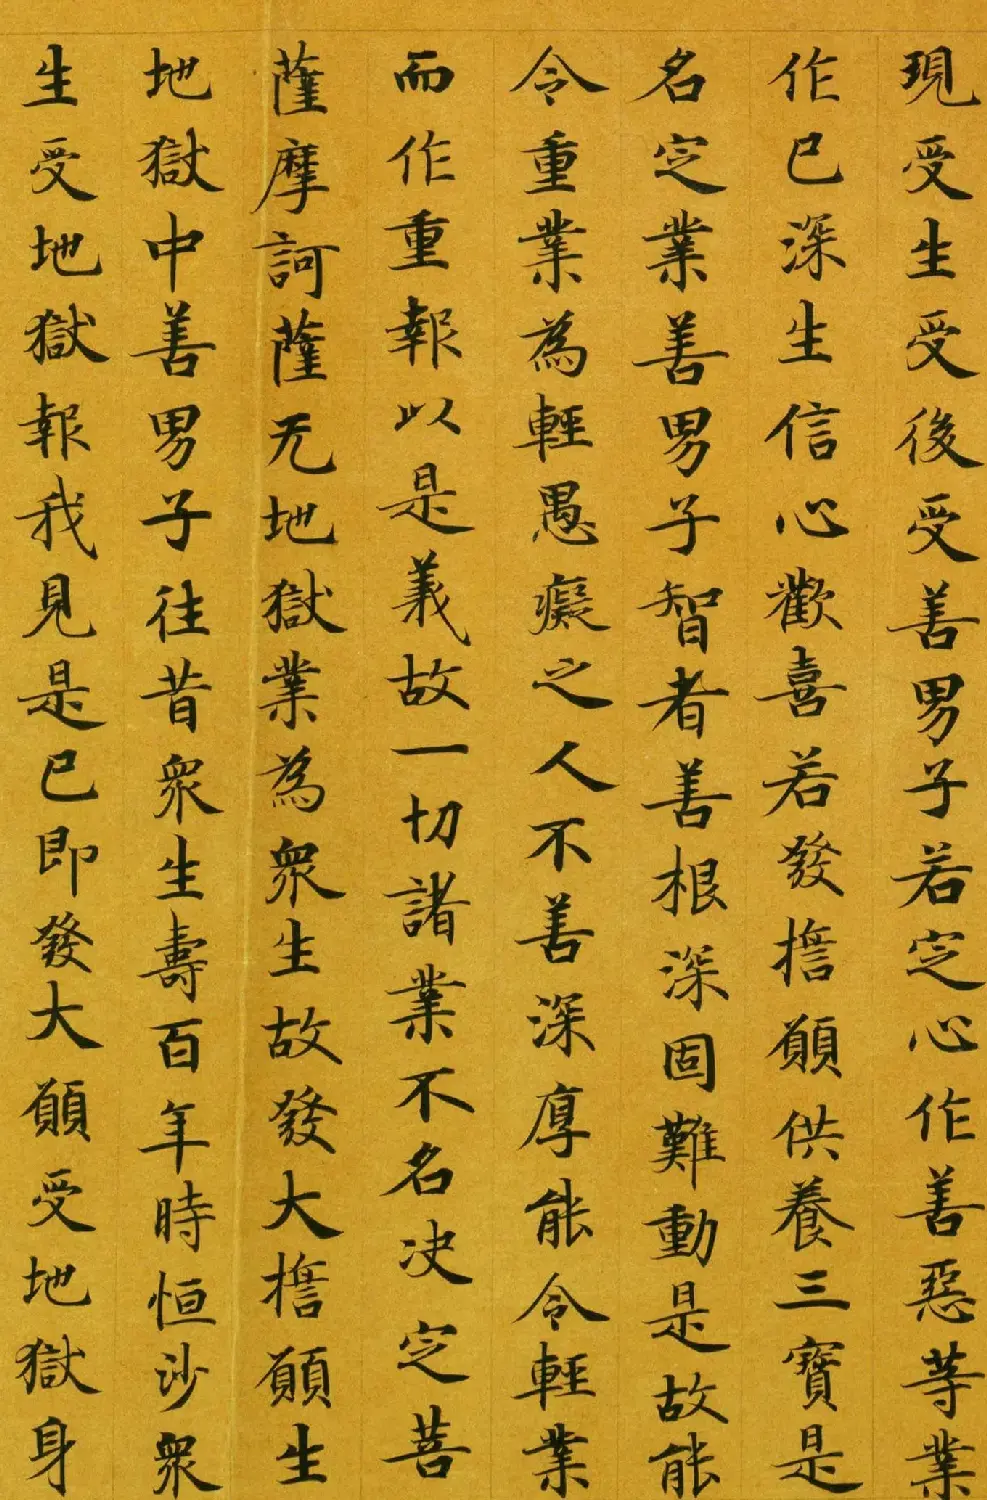 現受生受後受善男子若定心作善惡等業
作已深生信心歡喜若發擔願供養三寶是
名定業善男子智者善根深固難動是故能
令重業為輕愚癡之人不善深厚能令輕業
而作重報以是義故一切諸業不名决定菩
薩摩訶薩无地獄業為衆生故發大擔願生
地獄中善男子往昔衆生壽百年時恒沙衆
生受地獄報我見是已即發大願受地獄身